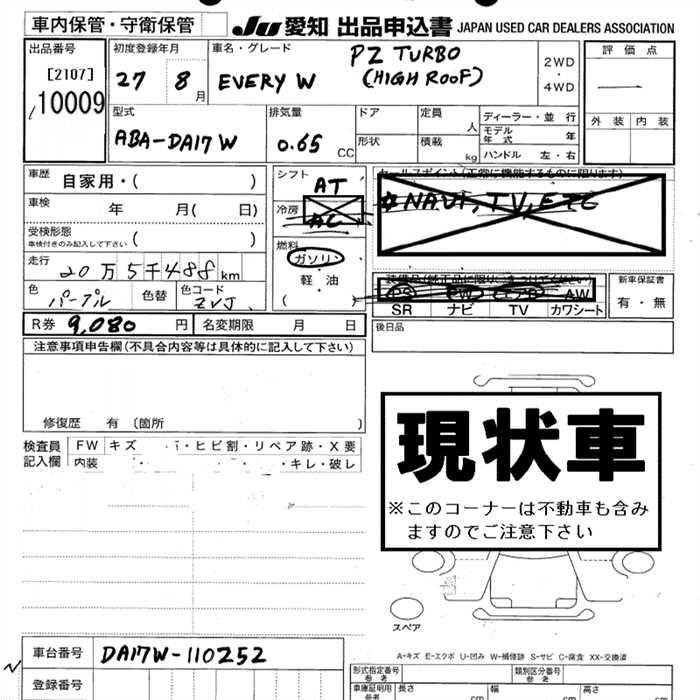 車内保管・守衛保管
JU 愛知 出品申込書 JAPAN USED CAR DEALERS ASSOCIATION
出品番号
[2107]
10009
初度登録年月
27 8月
車名・グレード
EVERY W PZ TURBO
(HIGH ROOF)
2WD
・
4WD
評価点
外装 内装
型式
ABA-DA17W
排気量
0.65 CC
ドア
形状
定員
人
積載
kg
ディーラー・並行
モデル年式 年
ハンドル 左・右
車歴 自家用・( )
車検 年 月( 日)
受検形態
車検付きのみ記入して下さい ( )
走行
20万5千488km
色
パープル
色替
色コード
ZVJ
シフト
AT
冷房
AC
燃料
ガソリン
・
軽油
( )
セールスポイント(正常に機能するものに限ります)
#NAVI,TV,ETC
装備品(純正品に限り○をつけてください)
PS PW エアB AW
SR ナビ TV カワシート
新車保証書
有・無
R券 9,080 円 名変期限 月 日
後日品
注意事項申告欄(不具合内容等は具体的に記入して下さい)
修復歴 有 (箇所 )
検査員記入欄
FW キズ ・ヒビ割・リペア跡・X要
内装 ・ ・ ・ ・キレ・破レ
現状車
※このコーナーは不動車も含みますのでご注意下さい
スペア
A-キズ E-エクボ U-凹み W-補修跡 S-サビ C-腐食 XX-交換済
車台番号 DA17W-110252
登録番号
形式指定番号
参考
類別区分番号
参考
車庫証明用
参考
長さ cm 幅 cm 高さ cm